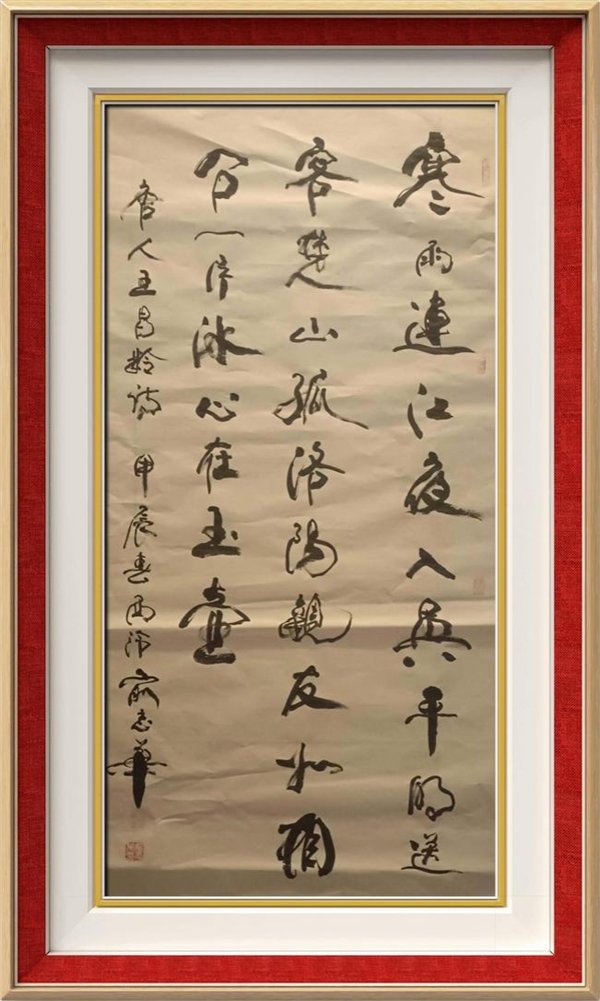 寒雨連江夜入吳平明送
客楚山孤洛陽親友如相
问一片冰心在玉壺
唐人王昌齡诗 甲辰春 志華